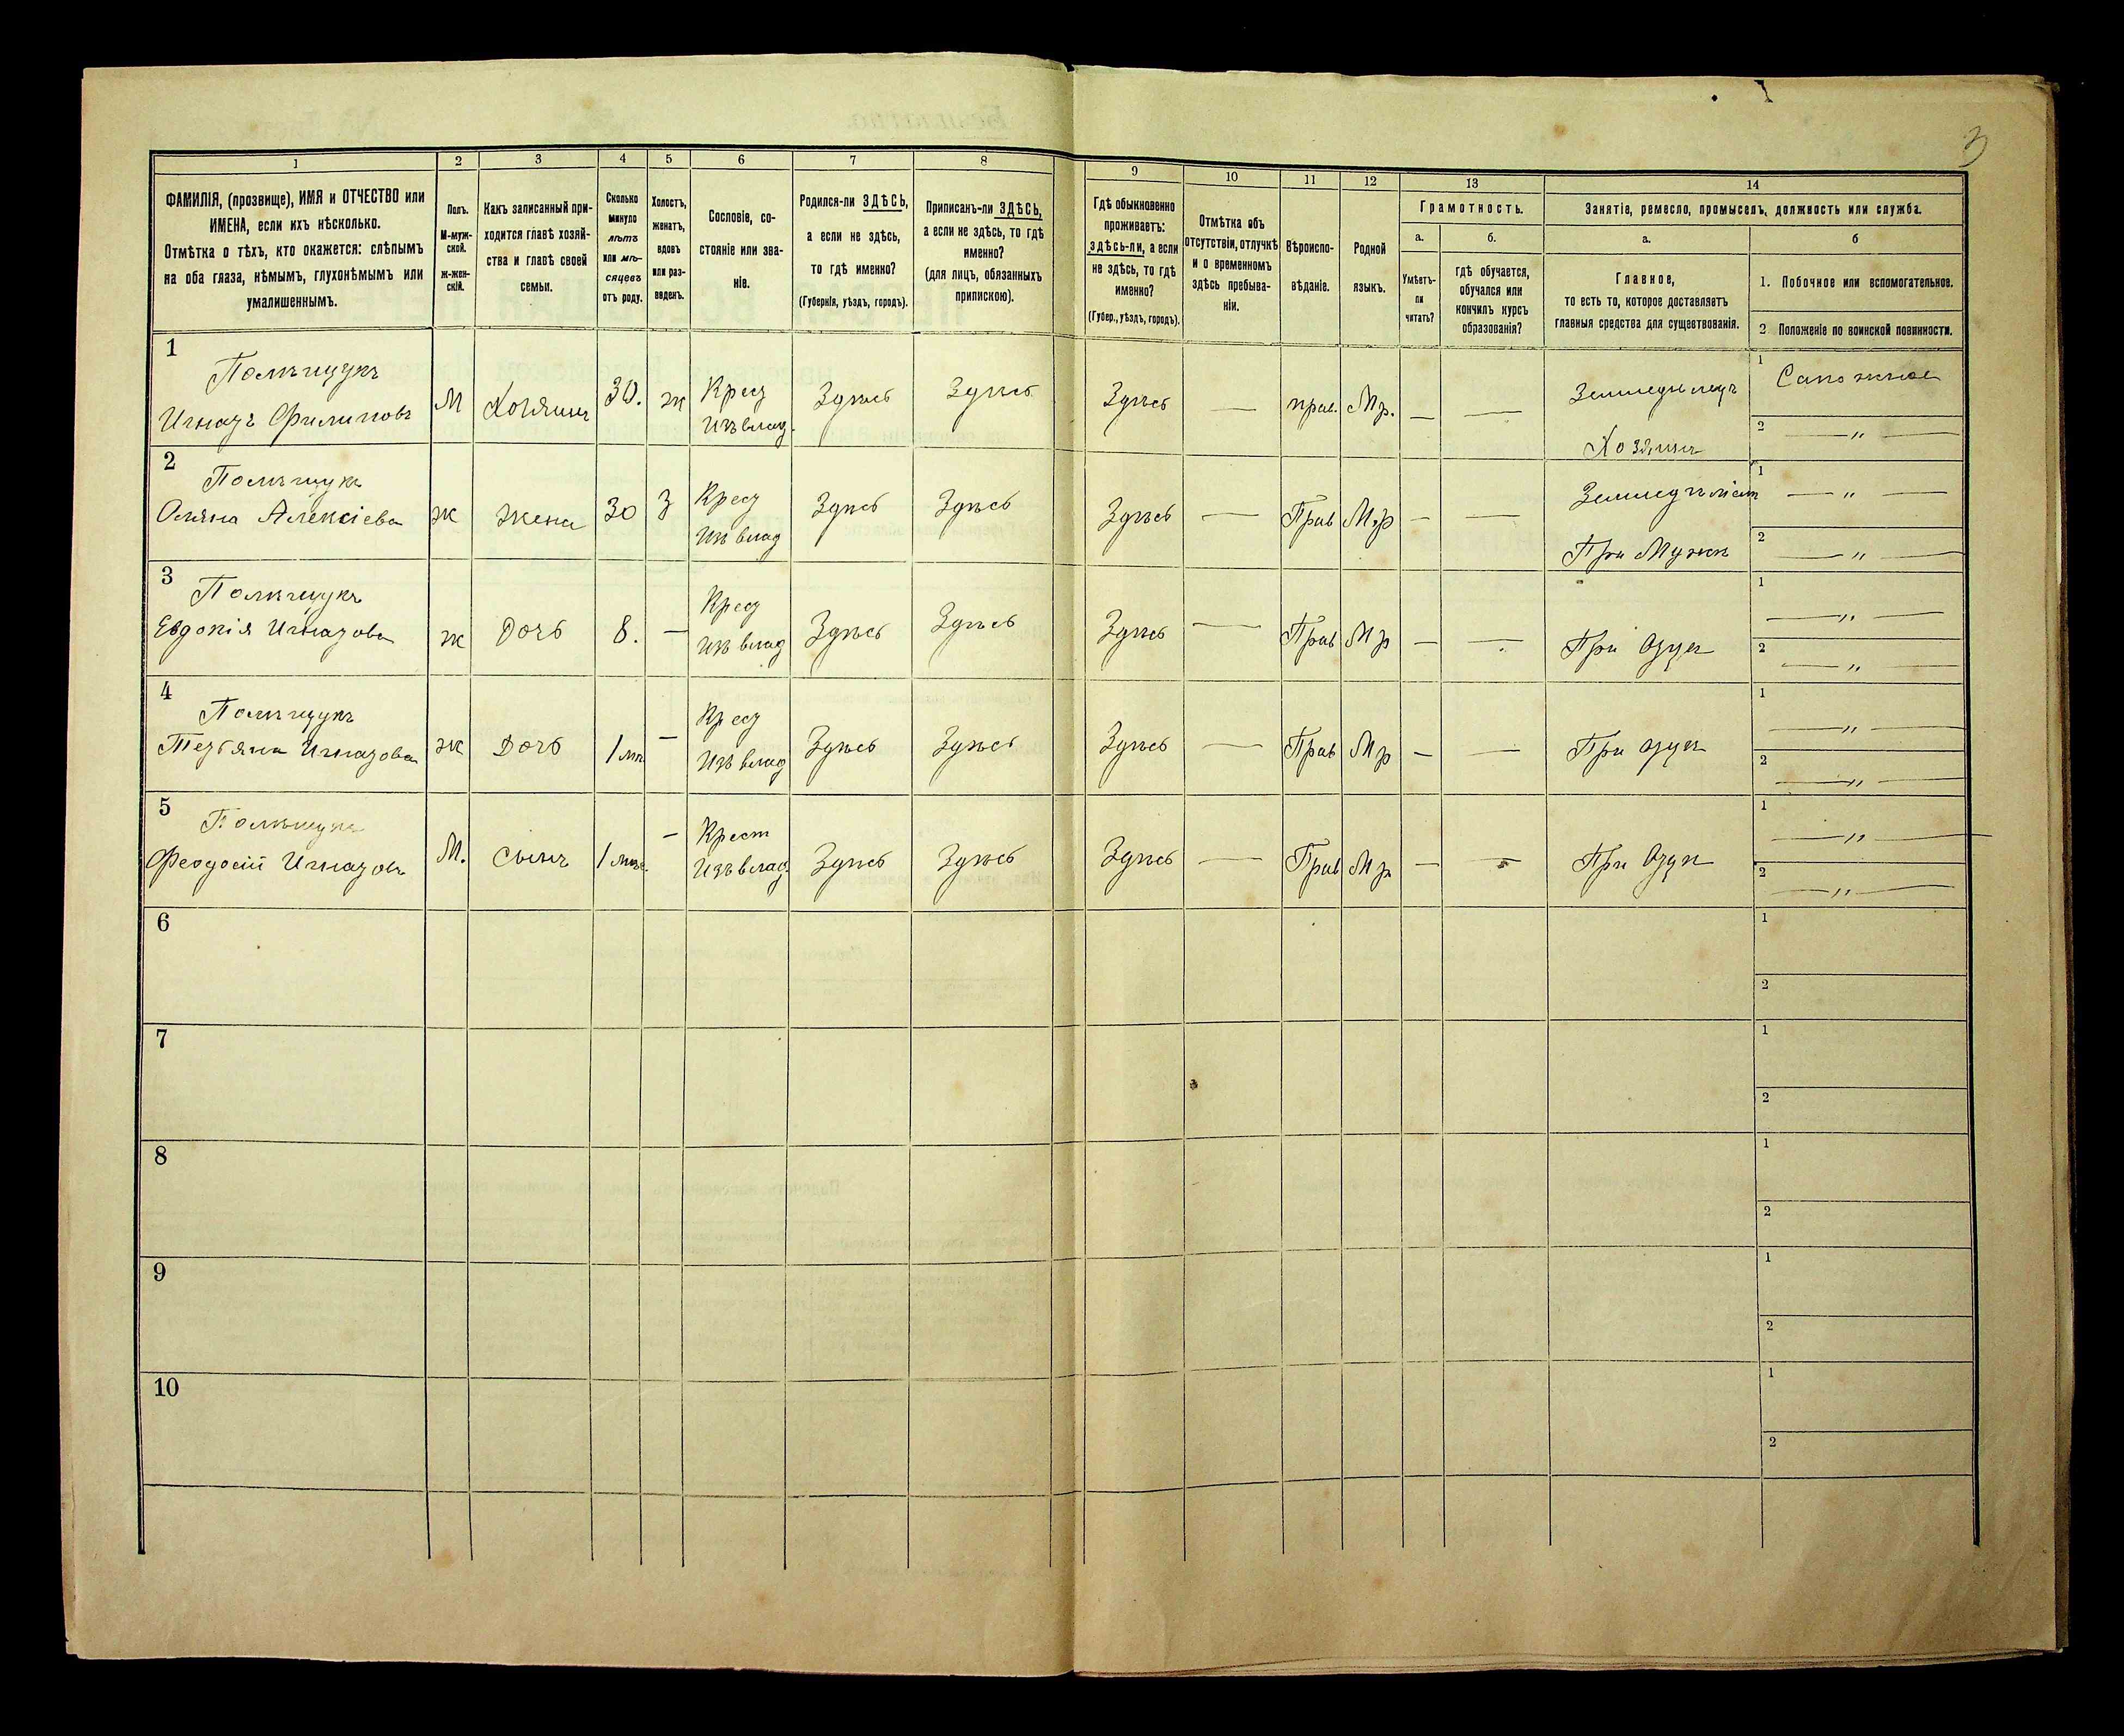 3
1
2
3
4
5
6
7
8
9
10
11
12
13
14
ФАМИЛІЯ, (прозвище), ИМЯ и ОТЧЕСТВО или
ИМЕНА, если ихъ нѣсколько.
Отмѣтка о тѣхъ, кто окажется: слѣпымъ
на оба глаза, нѣмымъ, глухонѣмымъ или
умалишеннымъ.
Полъ.
М-муж-
ской.
ж-жен-
скій.
Какъ записанный при-
ходится главѣ хозяй-
ства и главѣ своей
семьи.
Сколько
минуло
лѣтъ
или мѣ-
сяцевъ
отъ роду.
Холостъ,
женатъ,
вдовъ
или раз-
веденъ.
Сословіе, со-
стояніе или зва-
ніе.
Родился-ли ЗДѢСЬ,
а если не здѣсь,
то гдѣ именно?
(Губернія, уѣздъ, городъ).
Приписанъ-ли ЗДѢСЬ,
а если не здѣсь, то гдѣ
именно?
(для лицъ, обязанныхъ
припискою).
Гдѣ обыкновенно
проживаетъ:
здѣсь-ли, а если
не здѣсь, то гдѣ
именно?
(Губер., уѣздъ, городъ).
Отмѣтка объ
отсутствіи, отлучкѣ
и о временномъ
здѣсь пребыва-
ніи.
Вѣроиспо-
вѣданіе.
Родной
языкъ.
Грамотность.
а.
Умѣетъ-
ли
читать?
б.
гдѣ обучается,
обучался или
кончилъ курсъ
образованія?
Занятіе, ремесло, промыселъ, должность или служба.
а.
Главное,
то есть то, которое доставляетъ
главныя средства для существованія.
б
1. Побочное или вспомогательное.
2 Положеніе по воинской повинности.
1
Полѣщукъ
Игнатъ Филиповъ
М
Хозяинъ
30.
ж
Крест
Изъ влад.
Здѣсь
Здѣсь
Здѣсь
—
прав.
Мр.
—
—
Земледѣлецъ
Хозяинъ
1
Сапожное
2
— " —
2
Полѣщукъ
Оляна Алексіева
ж
Жена
30
З
Крест
Изъ влад
Здѣсь
Здѣсь
Здѣсь
—
Прав
Мр
—
—
При Мужѣ
1
— " —
2
— " —
3
Полѣщукъ
Евдокія Игнатова
ж
Дочь
8.
—
Крест
Изъ влад
Здѣсь
Здѣсь
Здѣсь
—
Прав
Мр
—
—
При Отцѣ
1
— " —
2
— " —
4
Полѣщукъ
Тетьяна Игнатова
ж
Дочь
1 мѣ
—
Крест
Изъ влад
Здѣсь
Здѣсь
Здѣсь
—
Прав
Мр
—
—
При отцѣ
1
— " —
2
— " —
5
Полѣщукъ
Феодосій Игнатовъ
М.
Сынъ
—
Крест
Изъ влад.
Здѣсь
Здѣсь
Здѣсь
—
Прав
Мр
—
—
При Отцѣ
1
— " —
2
— " —
6
1
2
7
1
2
8
1
2
9
1
2
10
1
2